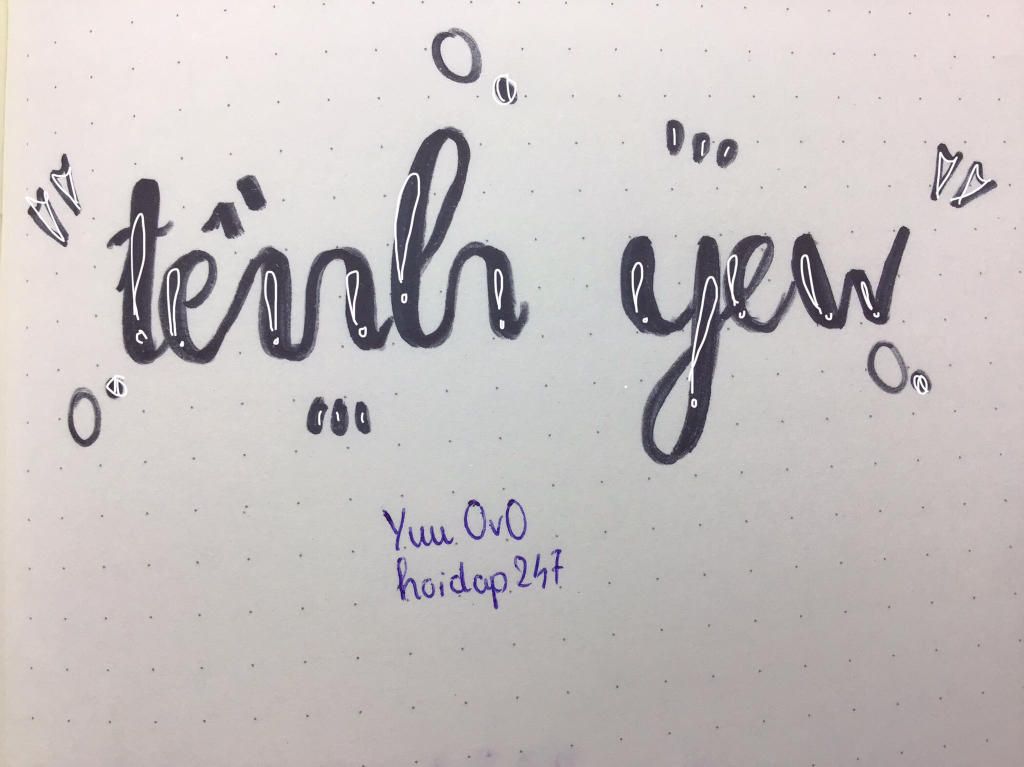 tềnh yew
Yuu OvO
hoidap247